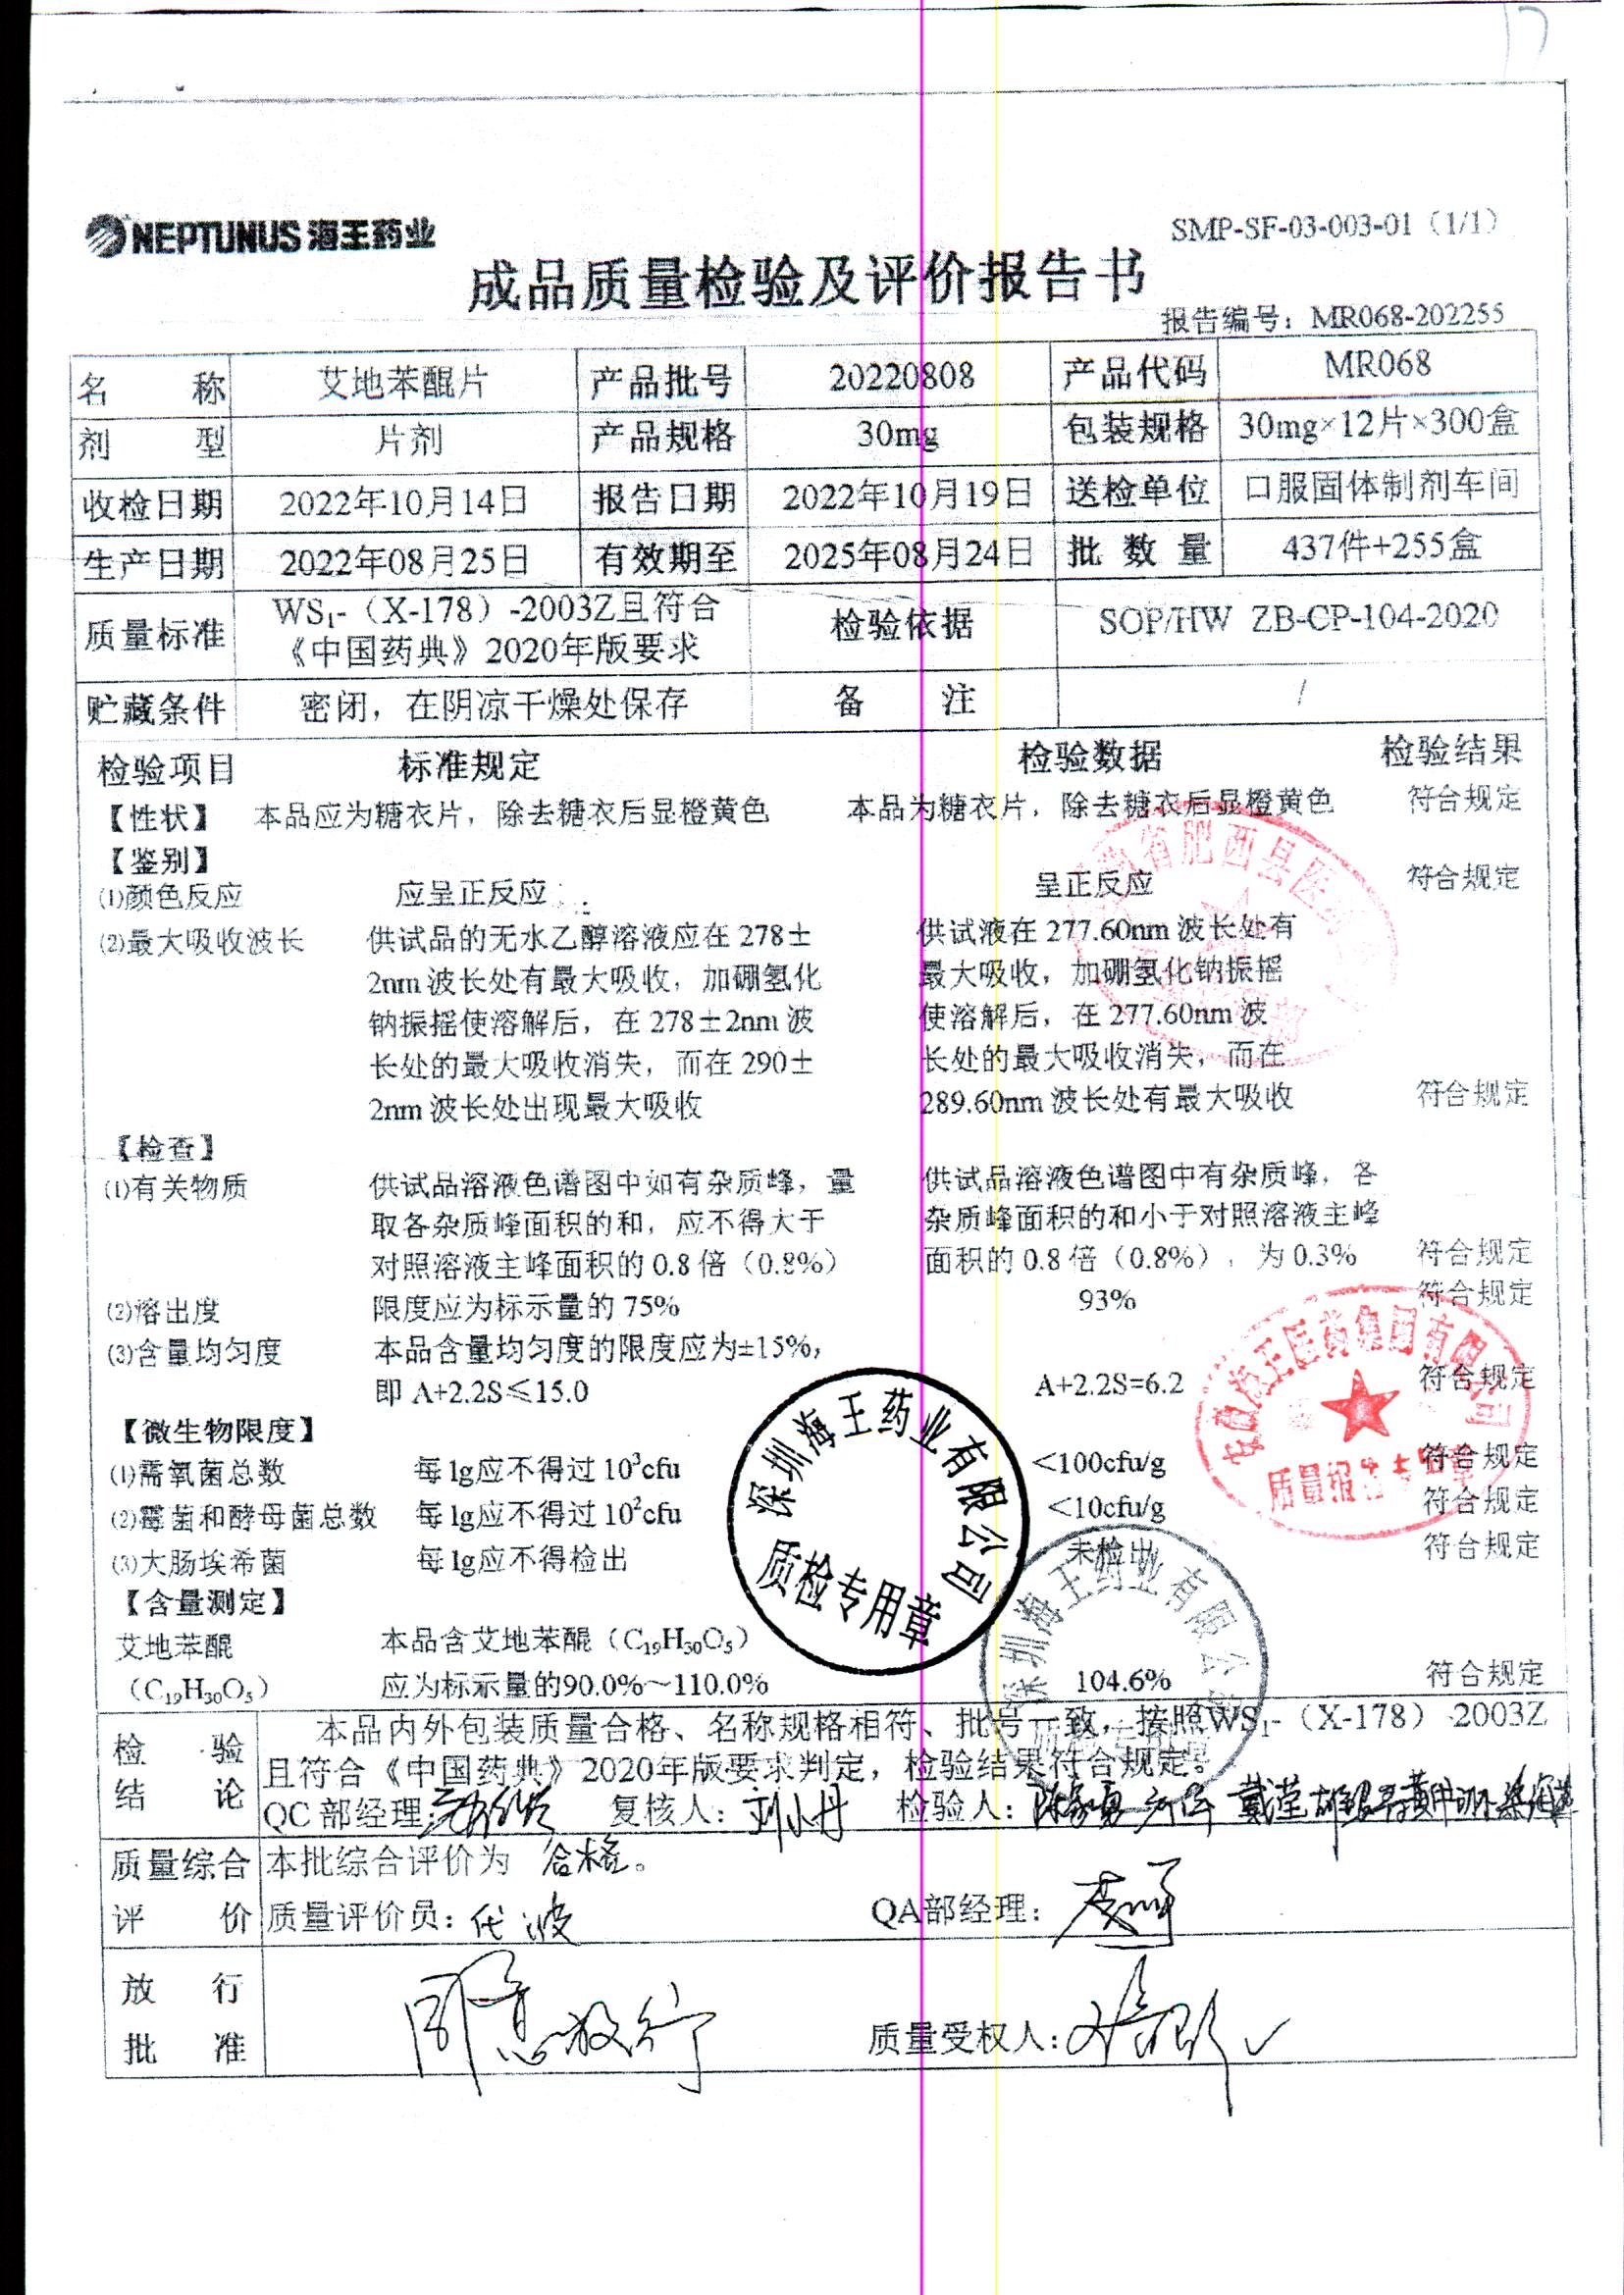 NEPTUNUS 海王药业
SMP-SF-03-003-01（1/1）
成品质量检验及评价报告书
报告编号：MR068-202255
名 称 艾地苯醌片 产品批号 20220808 产品代码 MR068
剂 型 片剂 产品规格 30mg 包装规格 30mg×12片×300盒
收检日期 2022年10月14日 报告日期 2022年10月19日 送检单位 口服固体制剂车间
生产日期 2022年08月25日 有效期至 2025年08月24日 批 数 量 437件+255盒
质量标准 WS₁-（X-178）-2003Z且符合 检验依据 SOP/HW ZB-CP-104-2020
《中国药典》2020年版要求
贮藏条件 密闭，在阴凉干燥处保存 备 注 /
检验项目 标准规定 检验数据 检验结果
【性状】 本品应为糖衣片，除去糖衣后显橙黄色 本品为糖衣片，除去糖衣后显橙黄色 符合规定
【鉴别】
⑴颜色反应 应呈正反应 呈正反应 符合规定
⑵最大吸收波长 供试品的无水乙醇溶液应在 278± 供试液在 277.60nm 波长处有
2nm 波长处有最大吸收，加硼氢化 最大吸收，加硼氢化钠振摇
钠振摇使溶解后，在 278±2nm 波 使溶解后，在 277.60nm 波
长处的最大吸收消失，而在 290± 长处的最大吸收消失，而在
2nm 波长处出现最大吸收 289.60nm 波长处有最大吸收 符合规定
【检查】
⑴有关物质 供试品溶液色谱图中如有杂质峰，量 供试品溶液色谱图中有杂质峰，各
取各杂质峰面积的和，应不得大于 杂质峰面积的和小于对照溶液主峰
对照溶液主峰面积的 0.8 倍（0.8%） 面积的 0.8 倍（0.8%），为 0.3% 符合规定
⑵溶出度 限度应为标示量的 75% 93% 符合规定
⑶含量均匀度 本品含量均匀度的限度应为±15%，
即 A+2.2S≤15.0 A+2.2S=6.2 符合规定
【微生物限度】
⑴需氧菌总数 每 1g应不得过 10³cfu <100cfu/g 符合规定
⑵霉菌和酵母菌总数 每 1g应不得过 10²cfu <10cfu/g 符合规定
⑶大肠埃希菌 每 1g应不得检出 未检出 符合规定
【含量测定】
艾地苯醌 本品含艾地苯醌（C₁₉H₃₀O₅）
（C₁₉H₃₀O₅） 应为标示量的90.0%～110.0% 104.6% 符合规定
深圳海王药业有限公司
质检专用章
深圳海王药业有限公
医药集团有限公司
质量报告专用章
省肥西县医
检 验 本品内外包装质量合格、名称规格相符、批号一致，按照WS₁-（X-178）-2003Z
结 论 且符合《中国药典》2020年版要求判定，检验结果符合规定。
QC 部经理： 复核人：刘小丹 检验人：
质量综合 本批综合评价为 合格。
评 价 质量评价员：代波 QA部经理：
放 行 同意放行
批 准 质量受权人：